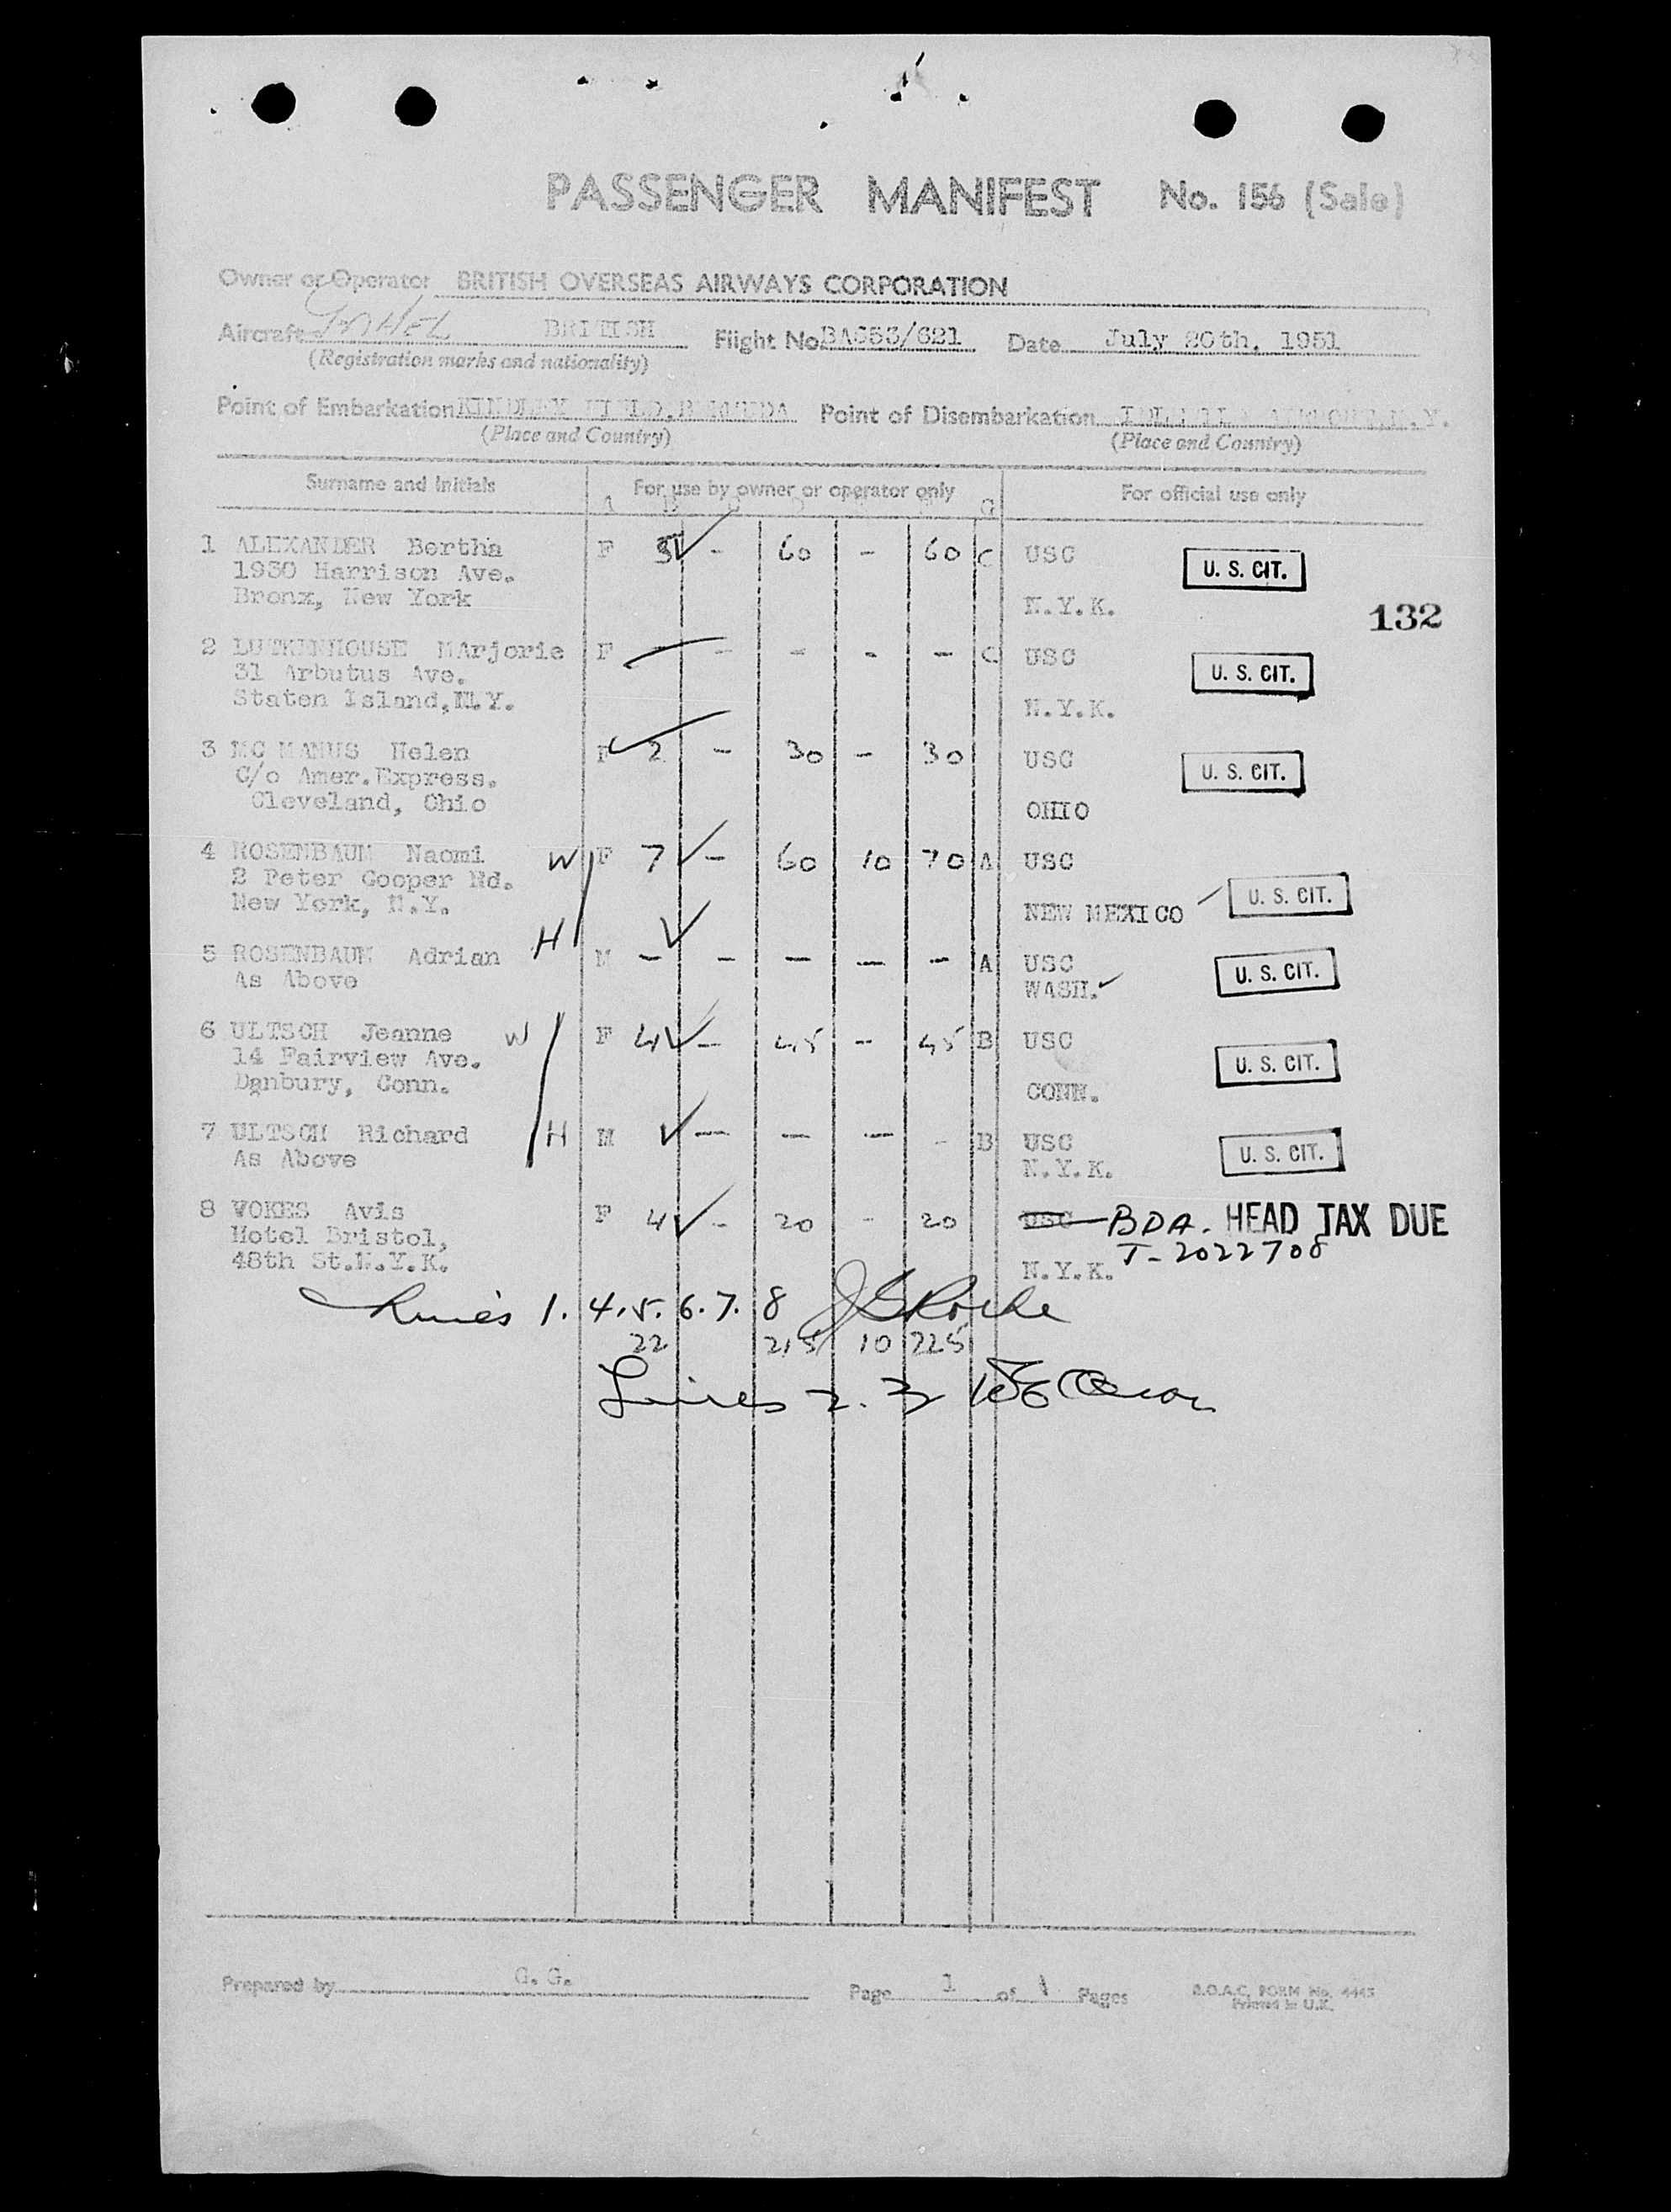 PASSENGER MANIFEST No. 156 (Sale)
Owner or Operator BRITISH OVERSEAS AIRWAYS CORPORATION
Aircraft BRITISH Flight No BA653/621 Date July 20th, 1951
(Registration marks and nationality)
Point of Embarkation KINDLEY FIELD, BERMUDA Point of Disembarkation IDLEWILD AIRPORT, N.Y.
(Place and Country) (Place and Country)
Surname and Initials For use by owner or operator only For official use only
A B C D E F G
1 ALEXANDER Bertha F 5 - 60 - 60 C USC U. S. CIT.
1930 Harrison Ave.
Bronx, New York N.Y.K. 132
2 LUTKENHOUSE MArjorie F - - - - - C USC U. S. CIT.
31 Arbutus Ave.
Staten Island, N.Y. N.Y.K.
3 MC MANUS Helen F 2 - 30 - 30 USC U. S. CIT.
C/o Amer. Express.
Cleveland, Ohio OHIO
4 ROSENBAUM Naomi W F 7 - 60 10 70 A USC
2 Peter Cooper Rd. U. S. CIT.
New York, N.Y. NEW MEXICO
5 ROSENBAUM Adrian H M - - - - - A USC U. S. CIT.
As Above WASH.
6 ULTSCH Jeanne W F 4 - 45 - 45 B USC
14 Fairview Ave. U. S. CIT.
Danbury, Conn. CONN.
7 ULTSCH Richard H M - - - - B USC U. S. CIT.
As Above N.Y.K.
8 VOKES Avis F 4 - 20 - 20 USC BDA. HEAD TAX DUE
Hotel Bristol, T-2022708
48th St. N.Y.K. N.Y.K.
Lines 1. 4. 5. 6. 7. 8
22 215 10 225
Lines 2. 3
Prepared by G. G. Page 1 of 1 Pages B.O.A.C. FORM No. 4443
Printed in U.K.